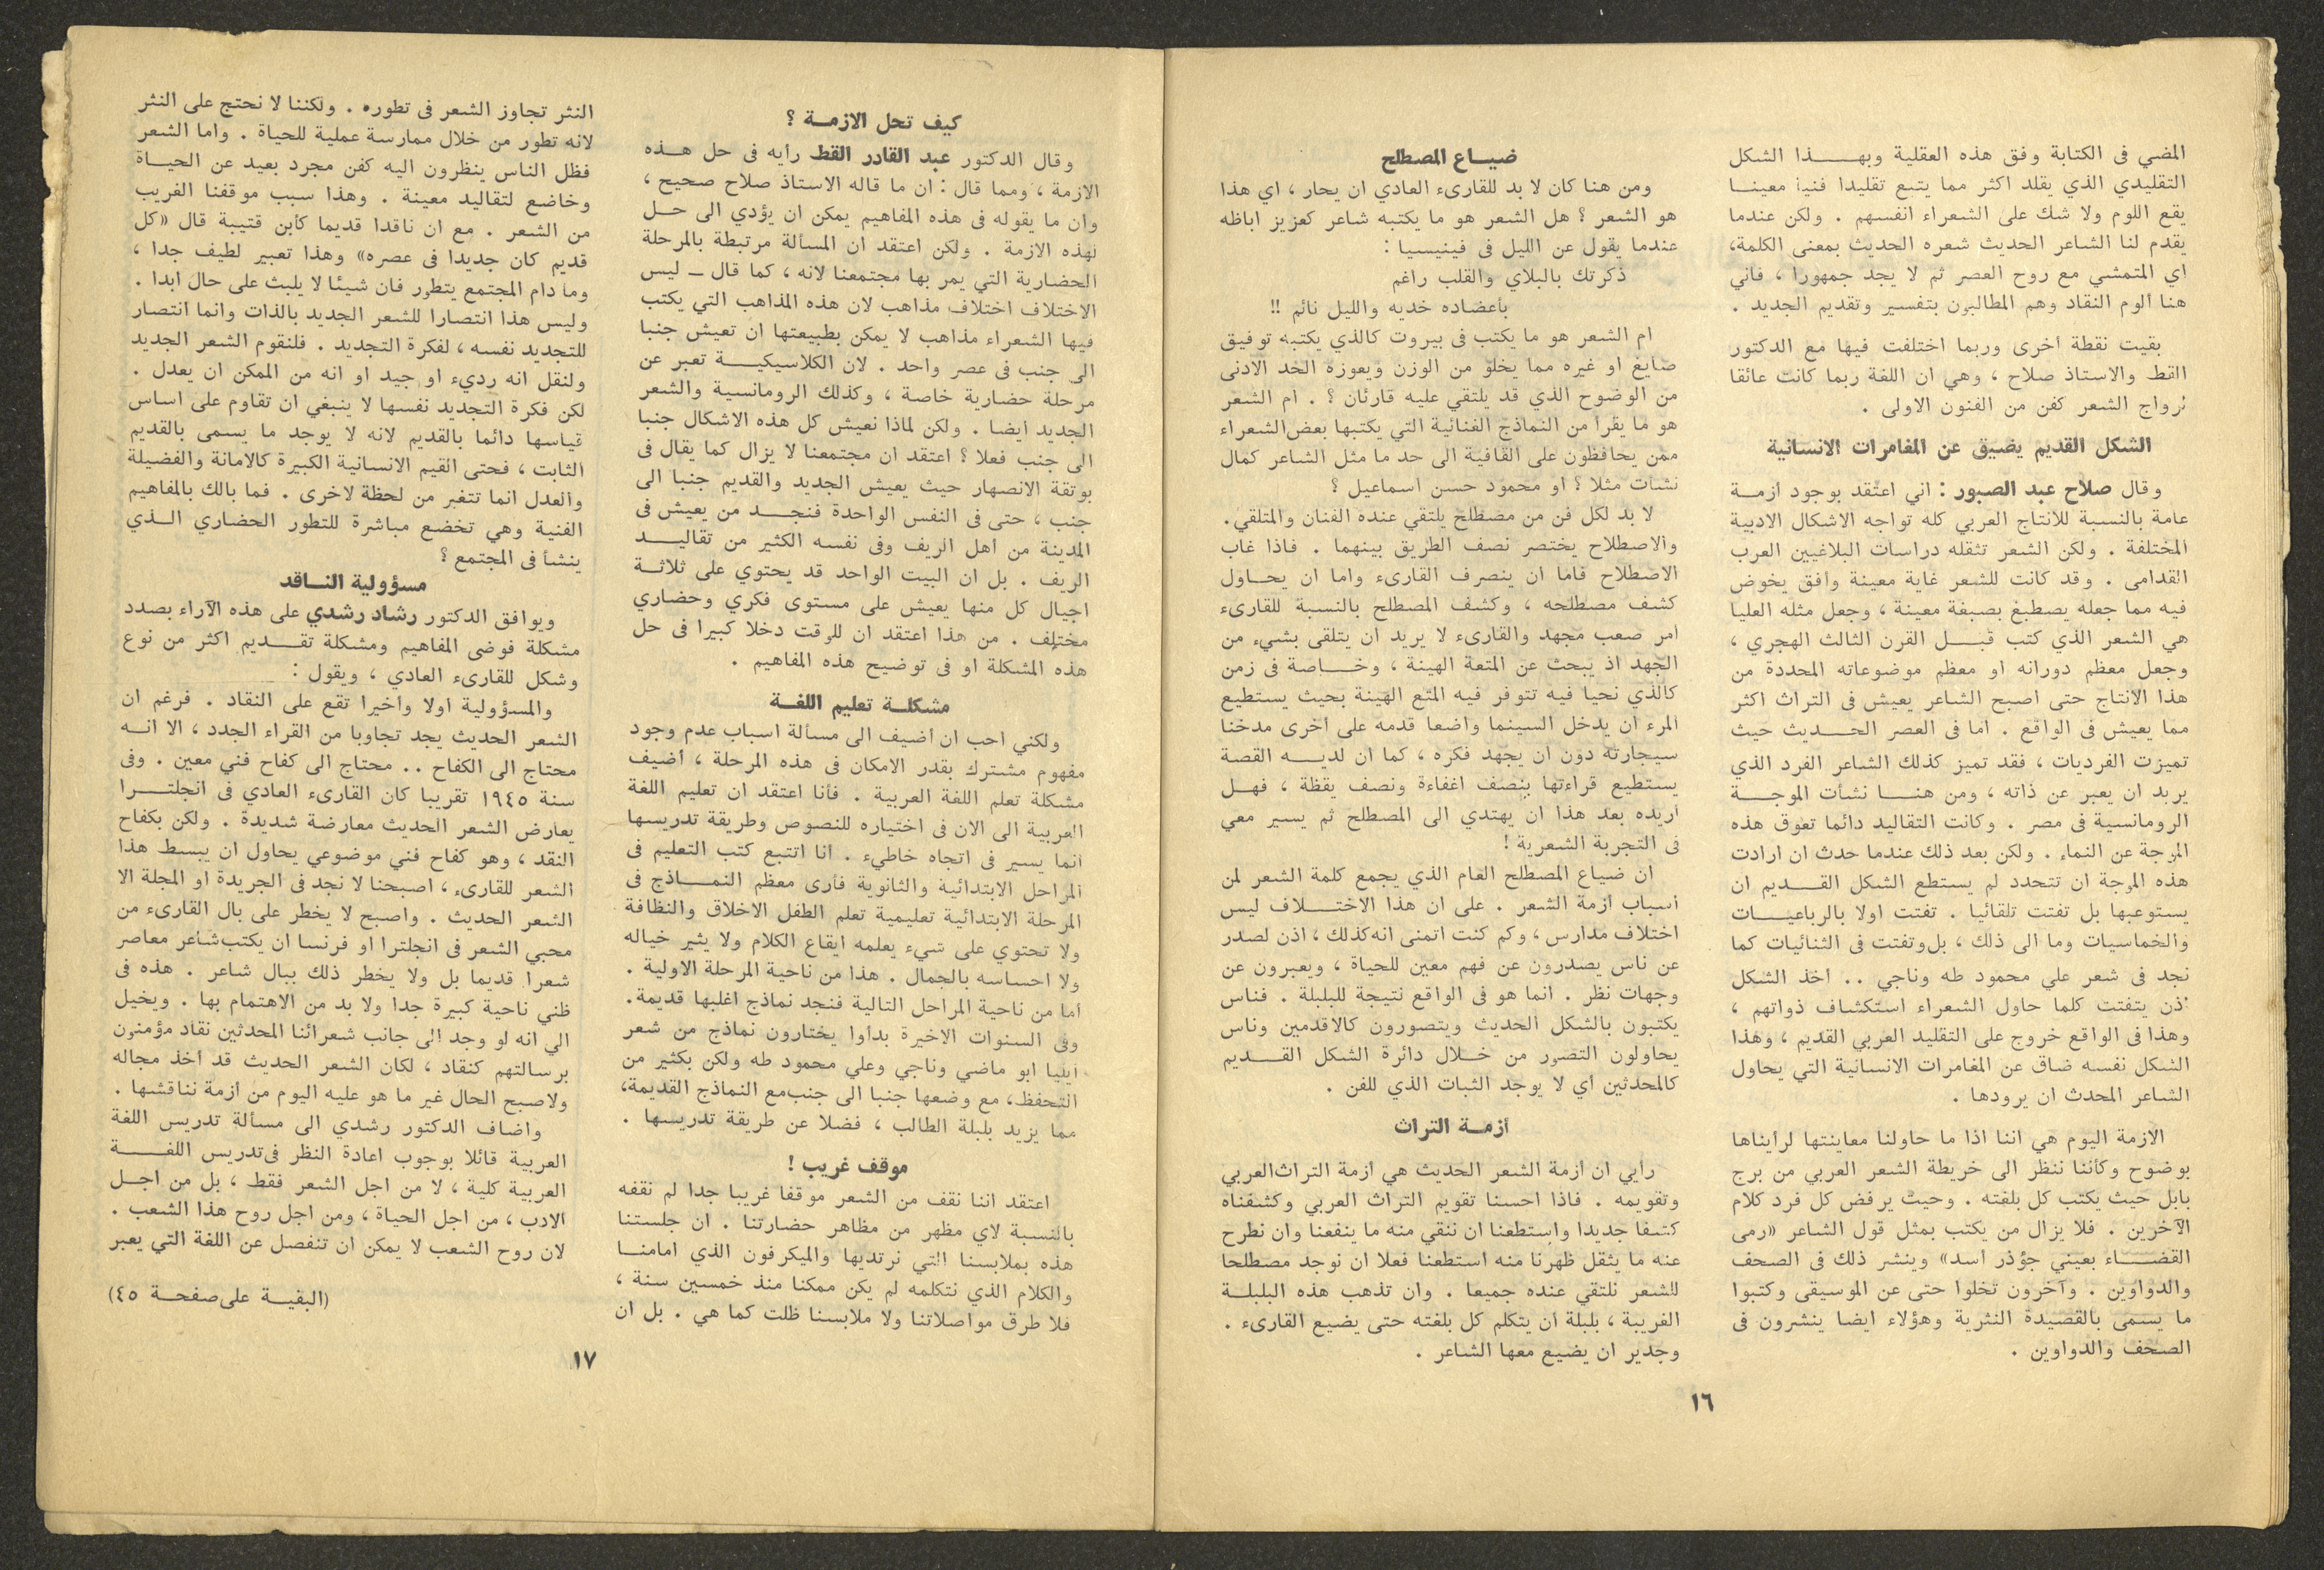 المضي فى الكتابة وفق هذه العقلية وبهذا الشكل
التقليدي الذي يقلد اكثر مما يتبع تقليدا فنيا معينا
يقع اللوم ولا شك على الشعراء انفسهم . ولكن عندما
يقدم لنا الشاعر الحديث شعره الحديث بمعنى الكلمة،
اي المتمشي مع روح العصر ثم لا يجد جمهورا ، فاني
هنا ألوم النقاد وهم المطالبون بتفسير وتقديم الجديد .
بقيت نقطة اخرى وربما اختلفت فيها مع الدكتور
القط والاستاذ صلاح ، وهي ان اللغة ربما كانت عائقا
لرواج الشعر كفن من الفنون الاولى .
الشكل القديم يضيق عن المغامرات الانسانية
وقال صلاح عبد الصبور : اني اعتقد بوجود ازمة
عامة بالنسبة للانتاج العربي كله تواجه الاشكال الادبية
المختلفة . ولكن الشعر تثقله دراسات البلاغيين العرب
القدامى . وقد كانت للشعر غاية معينة وافق يخوض
فيه مما جعله يصطبغ بصبغة معينة ، وجعل مثله العليا
هي الشعر الذي كتب قبل القرن الثالث الهجري ،
وجعل معظم دورانه او معظم موضوعاته المحددة من
هذا الانتاج حتى اصبح الشاعر يعيش فى التراث اكثر
مما يعيش فى الواقع . اما فى العصر الحديث حيث
تميزت الفرديات ، فقد تميز كذلك الشاعر الفرد الذي
يريد ان يعبر عن ذاته ، ومن هنا نشأت الموجة
الرومانسية فى مصر . وكانت التقاليد دائما تعوق هذه
الموجة عن النماء . ولكن بعد ذلك عندما حدث ان ارادت
هذه الموجة ان تتحدد لم يستطع الشكل القديم ان
يستوعبها بل تفتت تلقائيا . تفتت اولا بالرباعيات
والخماسيات وما الى ذلك ، بل وتفتت فى الثنائيات كما
نجد فى شعر علي محمود طه وناجي .. اخذ الشكل
اذن يتفتت كلما حاول الشعراء استكشاف ذواتهم ،
وهذا فى الواقع خروج على التقليد العربي القديم ، وهذا
الشكل نفسه ضاق عن المغامرات الانسانية التي يحاول
الشاعر المحدث ان يرودها .
الازمة اليوم هي اننا اذا ما حاولنا معاينتها لرأيناها
بوضوح وكأننا ننظر الى خريطة الشعر العربي من برج
بابل حيث يكتب كل بلغته . وحيث يرفض كل فرد كلام
الآخرين . فلا يزال من يكتب بمثل قول الشاعر «رمى
القضاء بعيني جؤذر اسد» وينشر ذلك فى الصحف
والدواوين . وآخرون تخلوا حتى عن الموسيقى وكتبوا
ما يسمى بالقصيدة النثرية وهؤلاء ايضا ينشرون فى
الصحف والدواوين .
ضياع المصطلح
ومن هنا كان لا بد للقارىء العادي ان يحار ، اي هذا
هو الشعر ؟ هل الشعر هو ما يكتبه شاعر كعزيز اباظه
عندما يقول عن الليل فى فينيسيا :
ذكرتك بالبلاي والقلب راغم
بأعضاده خديه والليل نائم !!
ام الشعر هو ما يكتب فى بيروت كالذي يكتبه توفيق
صايغ او غيره مما يخلو من الوزن ويعوزه الحد الادنى
من الوضوح الذي قد يلتقي عليه قارئان ؟ . ام الشعر
هو ما يقرأ من النماذج الغنائية التي يكتبها بعض الشعراء
ممن يحافظون على القافية الى حد ما مثل الشاعر كمال
نشأت مثلا ؟ او محمود حسن اسماعيل ؟
لا بد لكل فن من مصطلح يلتقي عنده الفنان والمتلقي.
والاصطلاح يختصر نصف الطريق بينهما . فاذا غاب
الاصطلاح فاما ان ينصرف القارىء واما ان يحاول
كشف مصطلحه ، وكشف المصطلح بالنسبة للقارىء
امر صعب مجهد والقارىء لا يريد ان يتلقى بشيء من
الجهد اذ يبحث عن المتعة الهينة ، وخاصة فى زمن
كالذي نحيا فيه تتوفر فيه المتع الهينة بحيث يستطيع
المرء ان يدخل السينما واضعا قدمه على اخرى مدخنا
سيجارته دون ان يجهد فكره ، كما ان لديه القصة
يستطيع قراءتها بنصف اغفاءة ونصف يقظة ، فهل
اريده بعد هذا ان يهتدي الى المصطلح ثم يسير معي
فى التجربة الشعرية !
ان ضياع المصطلح العام الذي يجمع كلمة الشعر لمن
اسباب ازمة الشعر . على ان هذا الاختلاف ليس
اختلاف مدارس ، وكم كنت اتمنى انه كذلك ، اذن لصدر
عن ناس يصدرون عن فهم معين للحياة ، ويعبرون عن
وجهات نظر . انما هو فى الواقع نتيجة للبلبلة . فناس
يكتبون بالشكل الحديث ويتصورون كالاقدمين وناس
يحاولون التصور من خلال دائرة الشكل القديم
كالمحدثين اي لا يوجد الثبات الذي للفن .
أزمة التراث
رأيي ان ازمة الشعر الحديث هي ازمة التراث العربي
وتقويمه . فاذا احسنا تقويم التراث العربي وكشفناه
كشفا جديدا واستطعنا ان ننقي منه ما ينفعنا وان نطرح
عنه ما يثقل ظهرنا منه استطعنا فعلا ان نوجد مصطلحا
للشعر نلتقي عنده جميعا . وان تذهب هذه البلبلة
الغريبة ، بلبلة ان يتكلم كل بلغته حتى يضيع القارىء .
وجدير ان يضيع معها الشاعر .
١٦
كيف تحل الازمة ؟
وقال الدكتور عبد القادر القط رأيه فى حل هذه
الازمة ، ومما قال : ان ما قاله الاستاذ صلاح صحيح ،
وان ما يقوله فى هذه المفاهيم يمكن ان يؤدي الى حل
لهذه الازمة . ولكن اعتقد ان المسألة مرتبطة بالمرحلة
الحضارية التي يمر بها مجتمعنا لانه ، كما قال ــ ليس
الاختلاف اختلاف مذاهب لان هذه المذاهب التي يكتب
فيها الشعراء مذاهب لا يمكن بطبيعتها ان تعيش جنبا
الى جنب فى عصر واحد . لان الكلاسيكية تعبر عن
مرحلة حضارية خاصة ، وكذلك الرومانسية والشعر
الجديد ايضا . ولكن لماذا نعيش كل هذه الاشكال جنبا
الى جنب فعلا ؟ اعتقد ان مجتمعنا لا يزال كما يقال فى
بوتقة الانصهار حيث يعيش الجديد والقديم جنبا الى
جنب ، حتى فى النفس الواحدة فنجد من يعيش فى
المدينة من اهل الريف وفى نفسه الكثير من تقاليد
الريف . بل ان البيت الواحد قد يحتوي على ثلاثة
اجيال كل منها يعيش على مستوى فكري وحضاري
مختلف . من هذا اعتقد ان للوقت دخلا كبيرا فى حل
هذه المشكلة او فى توضيح هذه المفاهيم .
مشكلة تعليم اللغة
ولكني احب ان اضيف الى مسألة اسباب عدم وجود
مفهوم مشترك بقدر الامكان فى هذه المرحلة ، أضيف
مشكلة تعلم اللغة العربية . فأنا اعتقد ان تعليم اللغة
العربية الى الان فى اختياره للنصوص وطريقة تدريسها
انما يسير فى اتجاه خاطيء . انا اتتبع كتب التعليم فى
المراحل الابتدائية والثانوية فأرى معظم النماذج فى
المرحلة الابتدائية تعليمية تعلم الطفل الاخلاق والنظافة
ولا تحتوي على شيء يعلمه ايقاع الكلام ولا يثير خياله
ولا احساسه بالجمال . هذا من ناحية المرحلة الاولية .
أما من ناحية المراحل التالية فنجد نماذج اغلبها قديمة.
وفى السنوات الاخيرة بدأوا يختارون نماذج من شعر
ايليا ابو ماضي وناجي وعلي محمود طه ولكن بكثير من
التحفظ، مع وضعها جنبا الى جنب مع النماذج القديمة،
مما يزيد بلبلة الطالب ، فضلا عن طريقة تدريسها .
موقف غريب !
اعتقد اننا نقف من الشعر موقفا غريبا جدا لم نقفه
بالنسبة لاي مظهر من مظاهر حضارتنا . ان جلستنا
هذه بملابسنا التي نرتديها والميكرفون الذي امامنا
والكلام الذي نتكلمه لم يكن ممكنا منذ خمسين سنة ،
فلا طرق مواصلاتنا ولا ملابسنا ظلت كما هي . بل ان
النثر تجاوز الشعر فى تطوره . ولكننا لا نحتج على النثر
لانه تطور من خلال ممارسة عملية للحياة . واما الشعر
فظل الناس ينظرون اليه كفن مجرد بعيد عن الحياة
وخاضع لتقاليد معينة . وهذا سبب موقفنا الغريب
من الشعر . مع ان ناقدا قديما كأبن قتيبة قال «كل
قديم كان جديدا فى عصره» وهذا تعبير لطيف جدا ،
وما دام المجتمع يتطور فان شيئا لا يلبث على حال ابدا .
وليس هذا انتصارا للشعر الجديد بالذات وانما انتصار
للتجديد نفسه ، لفكرة التجديد . فلنقوم الشعر الجديد
ولنقل انه رديء او جيد او انه من الممكن ان يعدل .
لكن فكرة التجديد نفسها لا ينبغي ان تقاوم على اساس
قياسها دائما بالقديم لانه لا يوجد ما يسمى بالقديم
الثابت ، فحتى القيم الانسانية الكبيرة كالامانة والفضيلة
والعدل انما تتغير من لحظة لاخرى . فما بالك بالمفاهيم
الفنية وهي تخضع مباشرة للتطور الحضاري الذي
ينشأ فى المجتمع ؟
مسؤولية الناقد
ويوافق الدكتور رشاد رشدي على هذه الآراء بصدد
مشكلة فوضى المفاهيم ومشكلة تقديم اكثر من نوع
وشكل للقارىء العادي ، ويقول :
والمسؤولية اولا واخيرا تقع على النقاد . فرغم ان
الشعر الحديث يجد تجاوبا من القراء الجدد ، الا انه
محتاج الى الكفاح .. محتاج الى كفاح فني معين . وفى
سنة ١٩٤٥ تقريبا كان القارىء العادي فى انجلترا
يعارض الشعر الحديث معارضة شديدة . ولكن بكفاح
النقد ، وهو كفاح فني موضوعي يحاول ان يبسط هذا
الشعر للقارىء ، اصبحنا لا نجد فى الجريدة او المجلة الا
الشعر الحديث . واصبح لا يخطر على بال القارىء من
محبي الشعر فى انجلترا او فرنسا ان يكتب شاعر معاصر
شعرا قديما بل ولا يخطر ذلك ببال شاعر . هذه فى
ظني ناحية كبيرة جدا ولا بد من الاهتمام بها . ويخيل
الي انه لو وجد الى جانب شعرائنا المحدثين نقاد مؤمنون
برسالتهم كنقاد ، لكان الشعر الحديث قد اخذ مجاله
ولاصبح الحال غير ما هو عليه اليوم من ازمة نناقشها .
واضاف الدكتور رشدي الى مسألة تدريس اللغة
العربية قائلا بوجوب اعادة النظر فى تدريس اللغة
العربية كلية ، لا من اجل الشعر فقط ، بل من اجل
الادب ، من اجل الحياة ، ومن اجل روح هذا الشعب .
لان روح الشعب لا يمكن ان تنفصل عن اللغة التي يعبر
(البقية على صفحة ٤٥)
١٧